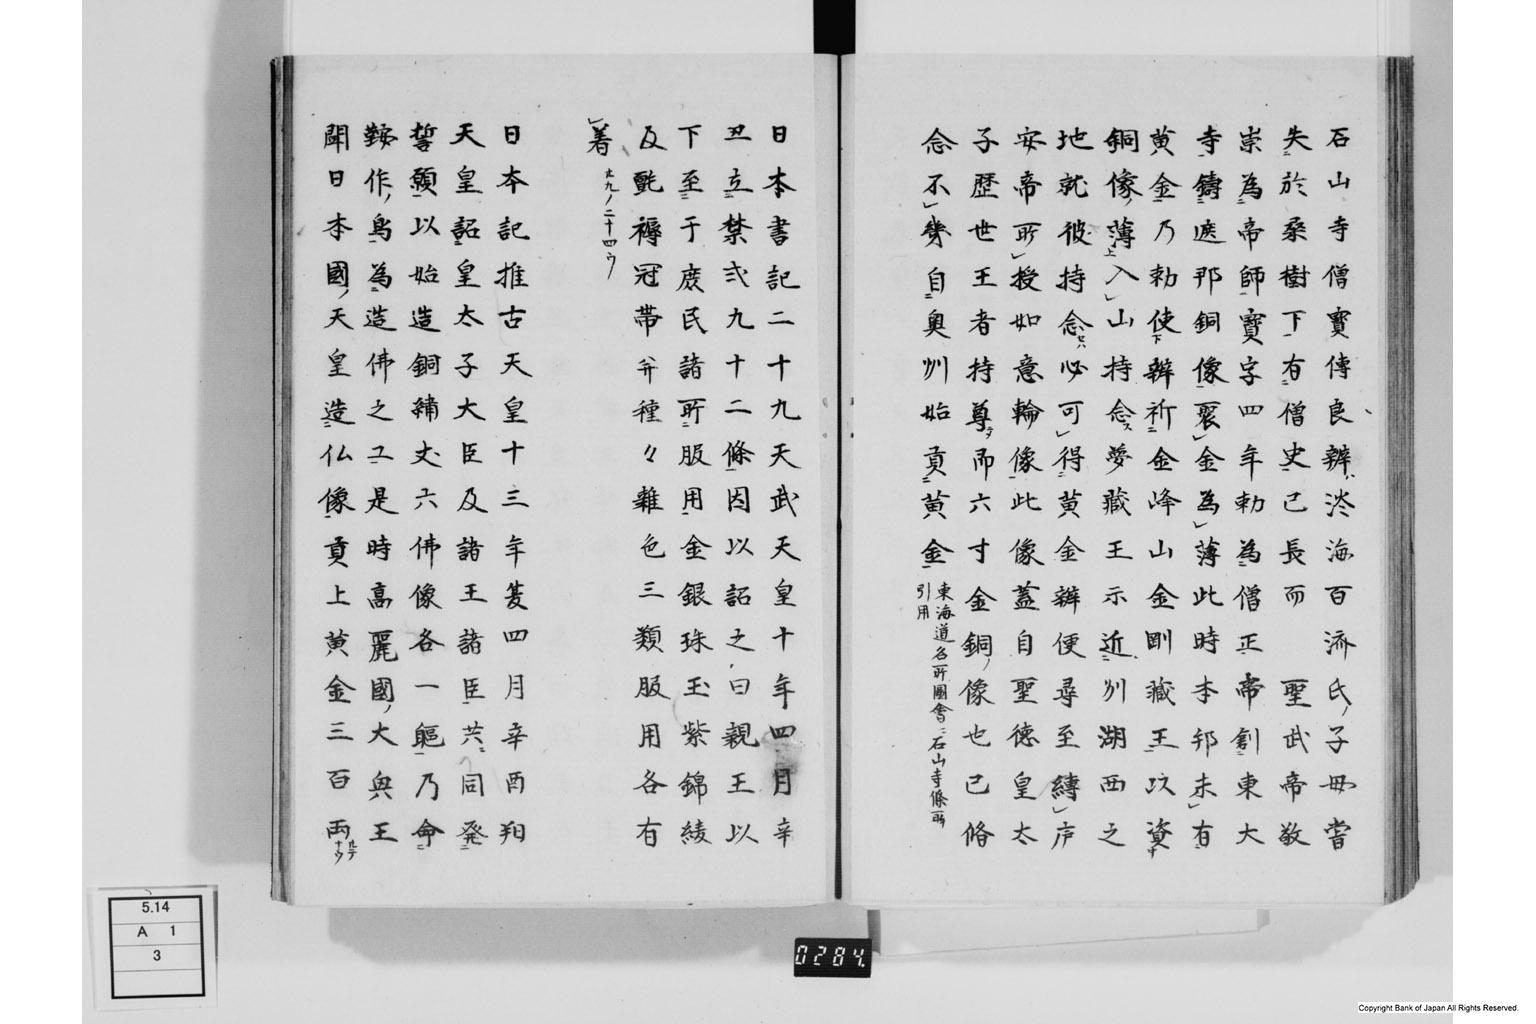 石山寺僧寳傳良辨淡海百濟氏ノ子母嘗
失於桑樹下有僧史已長而　聖武帝敬
崇為帝師寳字四年勅為僧正帝創東大
寺鑄遮那銅像褁金為薄此時本邦未有
黄金乃勅使辨祈金峰山金剛藏王以資
銅像ノ薄入山持念夢藏王示近州湖西之
地就彼持念必可得黄金辨便尋至縛戸
安帝所授如意輪像此像蓋自聖徳皇太
子歴世王者持尊而六寸金銅ノ像也已脩
念不幾自奥州始貢黄金
東海道名所圖會ニ石山寺條所
引用
日本書記二十九天武天皇十年四月辛
丑立禁式九十二條因以詔之曰親王以
下至于庶民諸所服用金銀珠玉紫錦綾
及氈褥冠帶并種々雜色三類服用各有
著
日本記推古天皇十三年夏四月辛酉朔
天皇詔皇太子大臣及諸王諸臣共同発
誓願以始造銅繡丈六佛像各一軀乃命
鞍作ノ鳥為造佛之工是時高麗國ノ大與王
聞日本國ノ天皇造仏像貢上黄金三百兩
5.14
A 1
3
0284.
Copyright Bank of Japan All Rights Reserved.